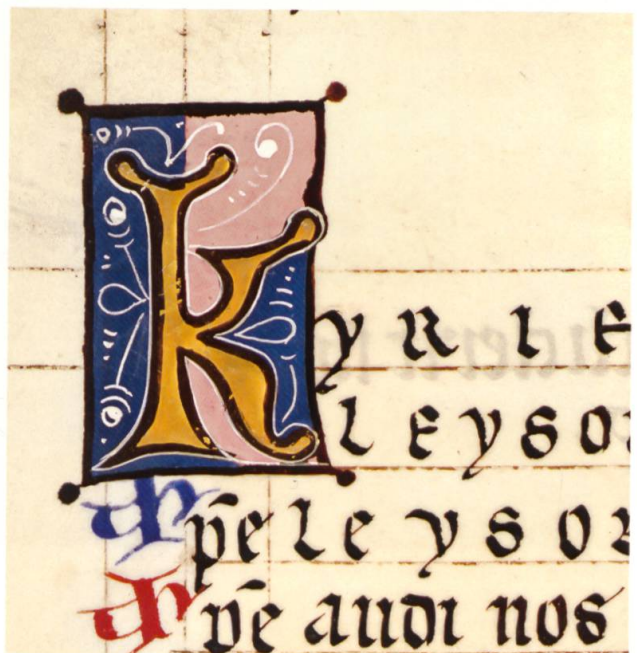 KYRIE
leyso
Xp̄e leyso
Xp̄e audi nos